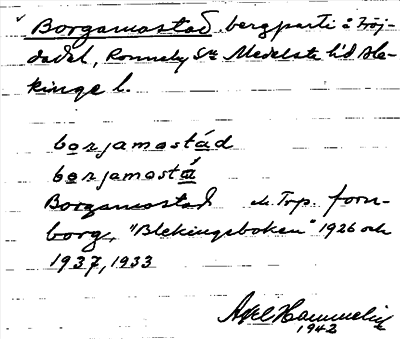 Borgamostad, bergparti å Fröj-
dadal, Ronneby Sn Medelsta hd Ble-
kinge l.
borjamostád
borjamostá
Borgamostad ch Trp. forn-
borg, "Blekingeboken" 1926 och
1937, 1933
Axel Hammelin
1942